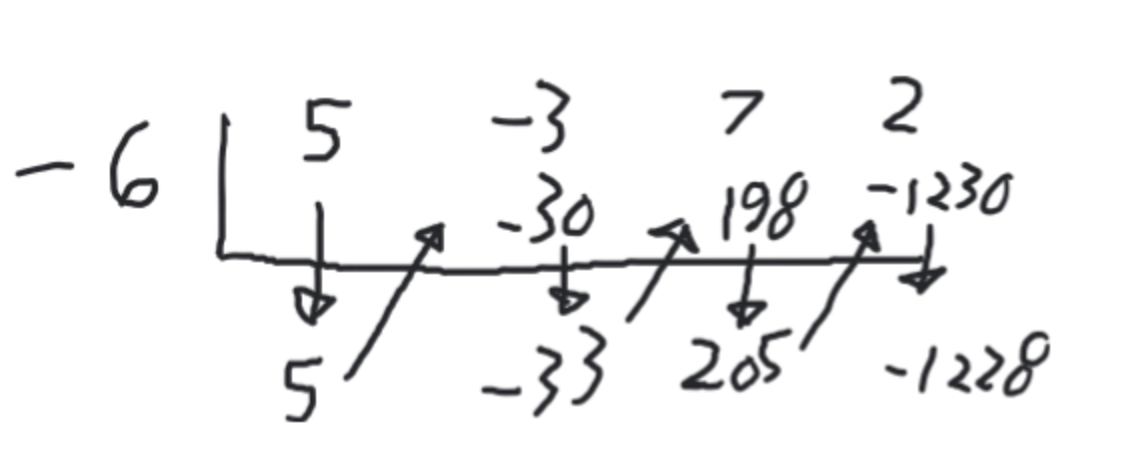 -6 5 -3 7 2
-30 198 -1230
5 -33 205 -1228